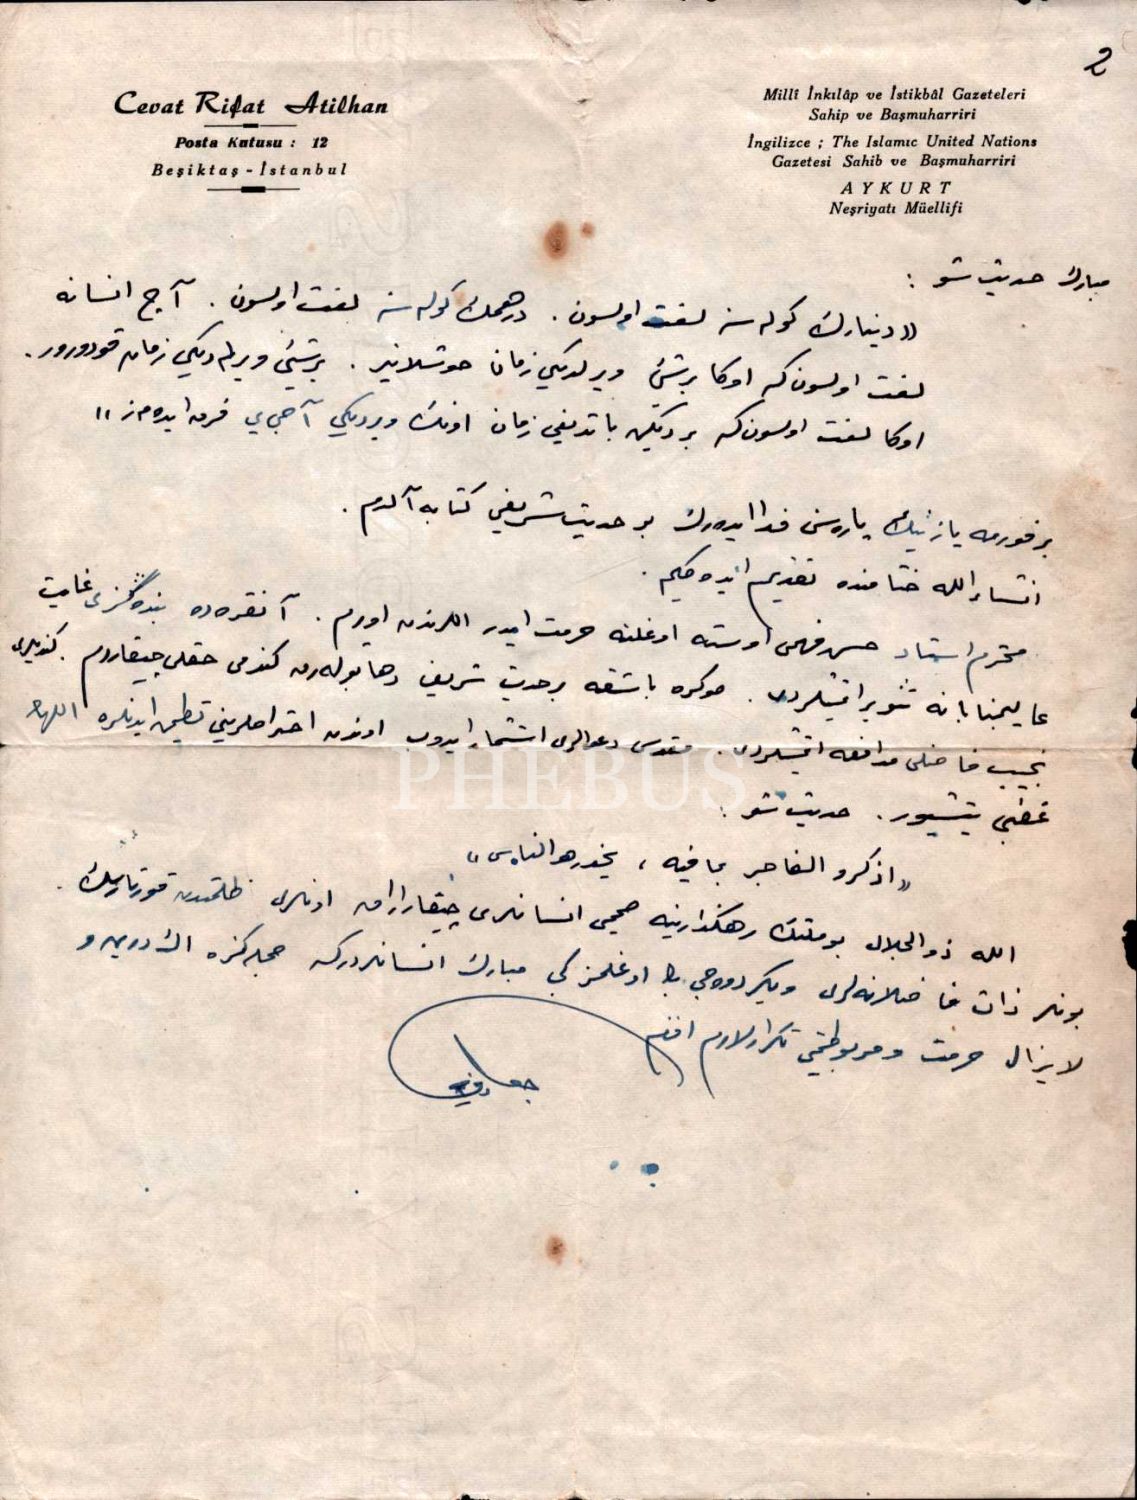 2
Cevat Rifat Atilhan
Posta Kutusu : 12
Beşiktaş - İstanbul
Millî İnkılâp ve İstikbâl Gazeteleri
Sahip ve Başmuharriri
İngilizce ; The Islamıc United Nations
Gazetesi Sahib ve Başmuharriri
AYKURT
Neşriyatı Müellifi
مبارك حديث شو :
«دينارك كوله سنه لعنت اولسون . درهمك كوله سنه لعنت اولسون . آج انسانه
لعنت اولسون كه اوكا برشئ ويرلديكي زمان خوشلانير . برشئ ويرلمديكي زمان قودورور .
اوكا لعنت اولسون كه بر ديكن باتديغي زمان اونك ويرديكي آجي يي فرق ايده مز »
بر فورمه يازينك ياروسنى فدا ايدهرك بو حديث شريفي كتابه آلدم .
انشاء الله ختامنده تقديم ايده جكم .
محترم استاد حسن فهمى اوسته اوغلنه حرمت ايدر اللرندن اوپرم . آنقره ده بنده كزى غايت
عاليجنابانه تنوير ايتمشلردى . صوكره باشقه بر حديث شريف دها بوله رق كندمى حقلى چيقاردم . كنديلرى
نجيب فاضلى مدافعه ايتمشلردى . مقدس دعوالرى استثمار ايدوب اوندن احتراصلريني تطمين ايدنلره اللهك
غضبي يتيشيور . حديث شو :
«اذكرو الفاجر بما فيه ، يحذره الناس»
الله ذو الجلال بو ملتك رهكذارينه صميمى انسانلرى چيقارارق اونلرى ظلمتدن قورتارسين .
بونلر ذات فاضلانه لرى و اوغلمز كبى مبارك انسانلردركه جمله كزه اك درين و
لا يزال حرمت و مربوطيتمي تكرارلارم افندم
جواد رفعت
PHEBUS